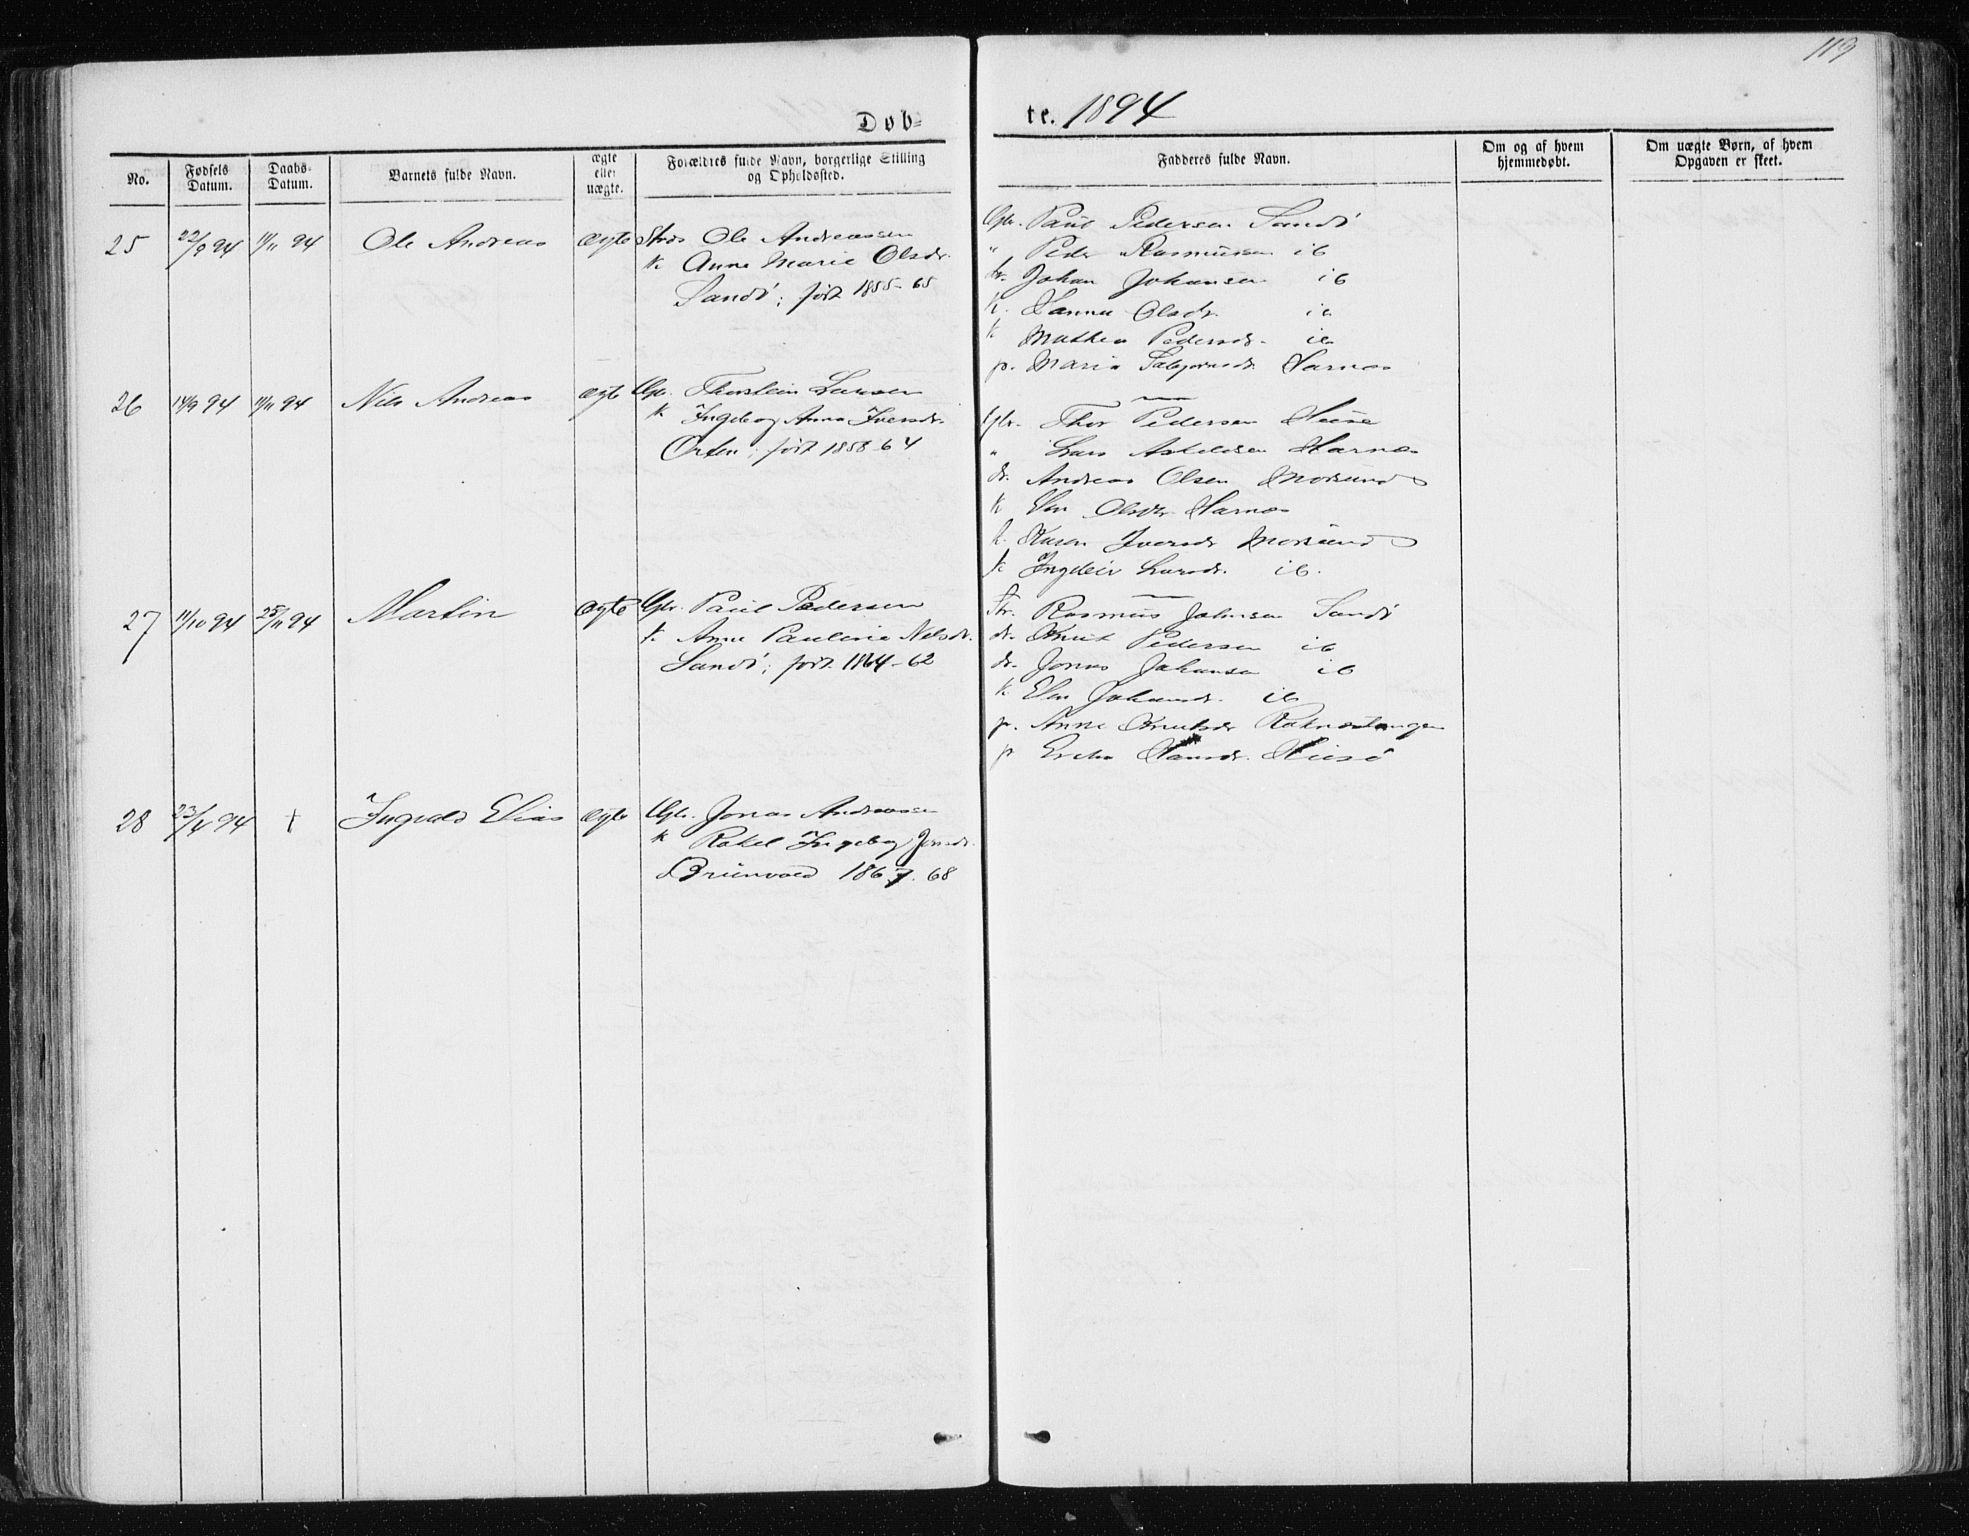 119
Døb=
te. 1894
No.
Fødsels Datum.
Daabs-Datum.
Barnets fulde Navn.
ægte eller uægte.
Forældres fulde Navn, borgerlige Stilling og Opholdssted.
Fadderes fulde Navn.
Om og af hvem hjemmedøbt.
Om uægte Børn, af hvem Opgaven er skeet.
25 22/9 94 11/11 94 Ole Andreas ægte Ole Andreassen
k. Anne Marie Olsdr.
Sandø; født 1855-65
Gbr. Paul Pedersen Sandø
" Peder Rasmussen ib
dr. Johan Johansen ib
k. Hanna Olsdr. ib
k Mathea Pedersdr. ib
p. Maria Harnæs
26 14/9 94 11/11 94 Nils Andreas ægte Gbr. Thorstein Larsen
k Ingeborg Anna Iversdr.
Orten; født 1858-64
Gbr. Thor Pedersen
" Lars Harnæs
dr. Andreas Olsen Morsund
k Olsdr. Harnæs
k. Karen Iversdr Morsund
k Larsdr. ib.
27 11/10 94 25/11 94 Martin ægte Gbr. Paul Pedersen
k. Anne Pauline Nilsdr.
Sandø; født 1864-62
Rasmus Johnsen Sandø
dr. Knut Pedersen ib
dr. Jonas Johansen ib
k Johansdr. ib
p. Anne Knutsdr Raknestangen
p Hansdr.
28 23/4 94 + Ingvald Elias ægte Gbr. Jonas Andreassen
k Rakel Ingeborg Jonsdr.
1867. 68